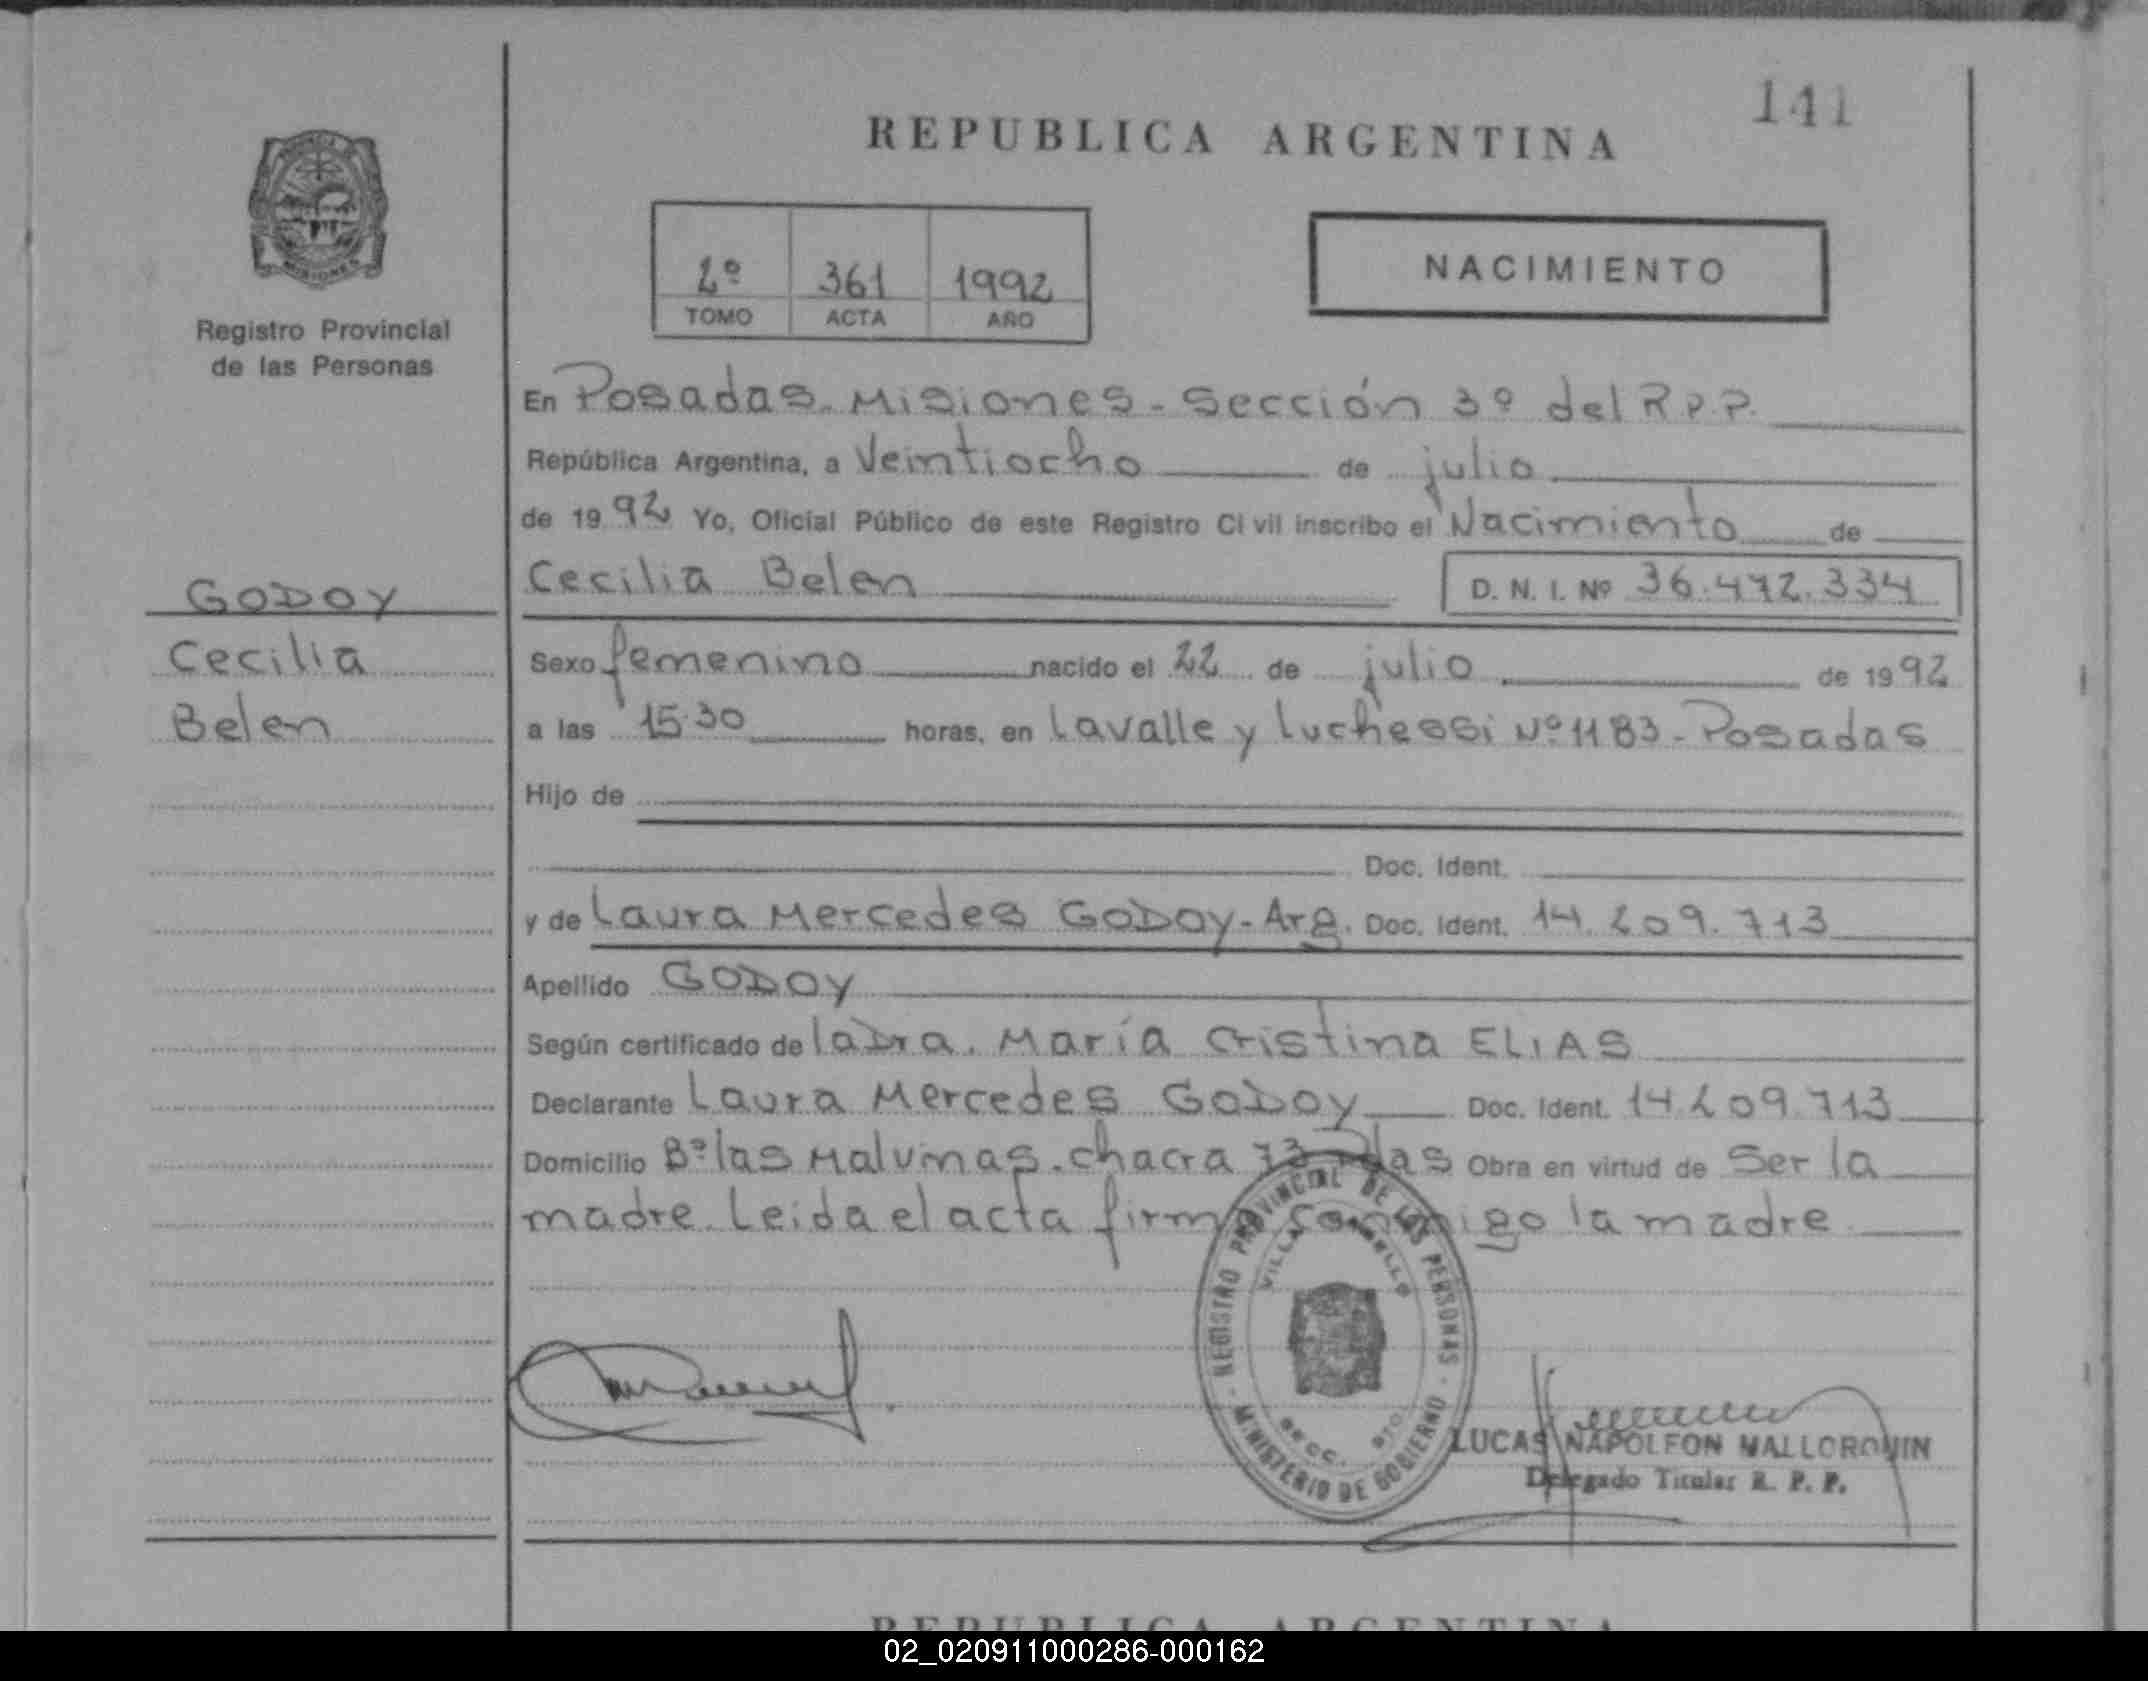 141
REPUBLICA ARGENTINA
2º 361 1992
TOMO ACTA AÑO
NACIMIENTO
Registro Provincial
de las Personas
GODOY
Cecilia
Belen
En Posadas. Misiones - Sección 3º del R.P.P.
República Argentina, a Veintiocho de julio
de 1992 Yo, Oficial Público de este Registro Civil inscribo el Nacimiento de
Cecilia Belen D. N. I. Nº 36.472.334
Sexo femenino nacido el 22 de julio de 1992
a las 15.30 horas, en Lavalle y Luchessi Nº 1183 - Posadas
Hijo de
Doc. Ident.
y de Laura Mercedes GODOY - Arg. Doc. Ident. 14.209.713
Apellido GODOY
Según certificado de la Dra. María Cristina ELIAS
Declarante Laura Mercedes GODOY Doc. Ident. 14.209.713
Domicilio Bº las Malvinas. chacra 73 Pdas Obra en virtud de Ser la
madre. Leida el acta firma conmigo la madre
REGISTRO PROVINCIAL DE LAS PERSONAS
MINISTERIO DE GOBIERNO
VILLA
LUCAS NAPOLEON MALLORQUIN
Delegado Titular R. P. P.
REPUBLICA ARGENTINA
02_020911000286-000162